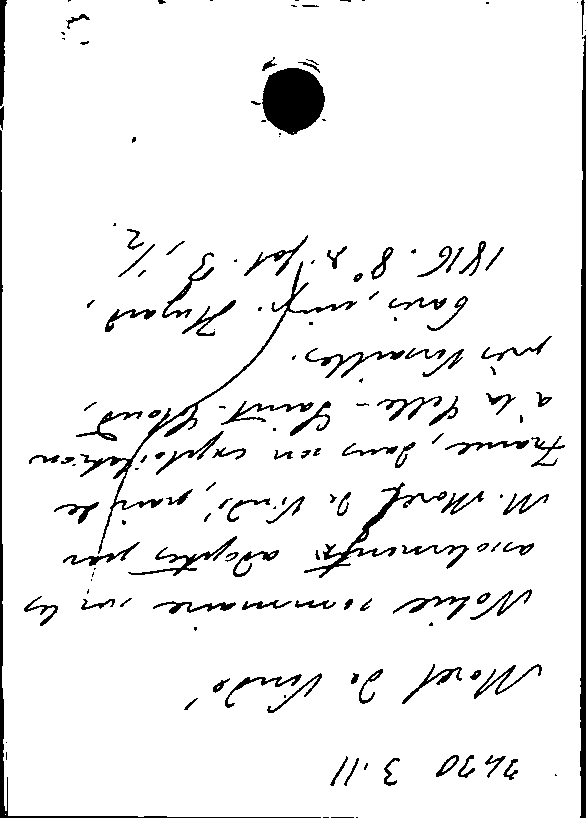 3430 3.11
Morel de Vindé
Notice sommaire sur les
assolements adoptés par
M. Morel de Vindé, pair de
France, dans son exploitation
à la Celle-Saint-Cloud,
près Versailles.
Paris, impr. Huzard,
1816. 8° R. fol. 3, 1/2